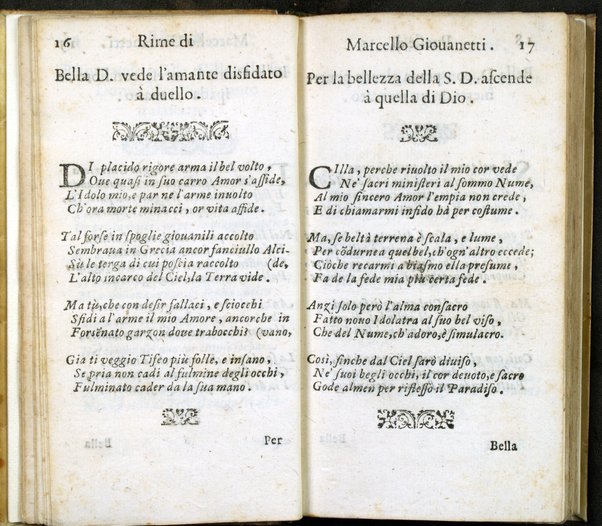 16 Rime di
Bella D. vede l'amante disfidato
à duello.
DI placido rigore arma il bel volto,
Oue quasi in suo carro Amor s'asside,
L'Idolo mio, e par ne l'arme inuolto
Ch'ora morte minacci, or vita affide.
Tal forse in spoglie giouanili accolto
Sembraua in Grecia ancor fanciullo Alci-
Sù le terga di cui poscia raccolto (de,
L'alto incarco del Ciel, la Terra vide.
Ma tù, che con desir fallaci, e sciocchi
Sfidi a l'arme il mio Amore, ancorche in
Forsēnato garzon dove trabocchi (vano,
Gia ti veggio Tifeo più folle, e insano,
Se pria non cadi al fulmine degli occhi,
Fulminato cader da la sua mano.
Per
Marcello Giouanetti. 17
Per la bellezza della S. D. ascende
à quella di Dio.
CIlla, perche riuolto il mio cor vede
Ne' sacri ministeri al sommo Nume,
Al mio sincero Amor l'empia non crede,
E di chiamarmi infido hà per costume.
Ma, se beltà terrena è scala, e lume,
Per cōdurne a quel bel, ch'ogn'altro eccede;
Ciòche recarmi a biasmo ella presume,
Fa de la fede mia più certa fede.
Anzi solo però l'alma consacro
Fatto nouo Idolatra al suo bel viso,
Che del Nume, ch'adoro, è simulacro.
Così, finche dal Ciel sarò diuiso,
Ne' suoi begli occhi, il cor deuoto, e sacro
Gode almen per riflesso il Paradiso.
Bella